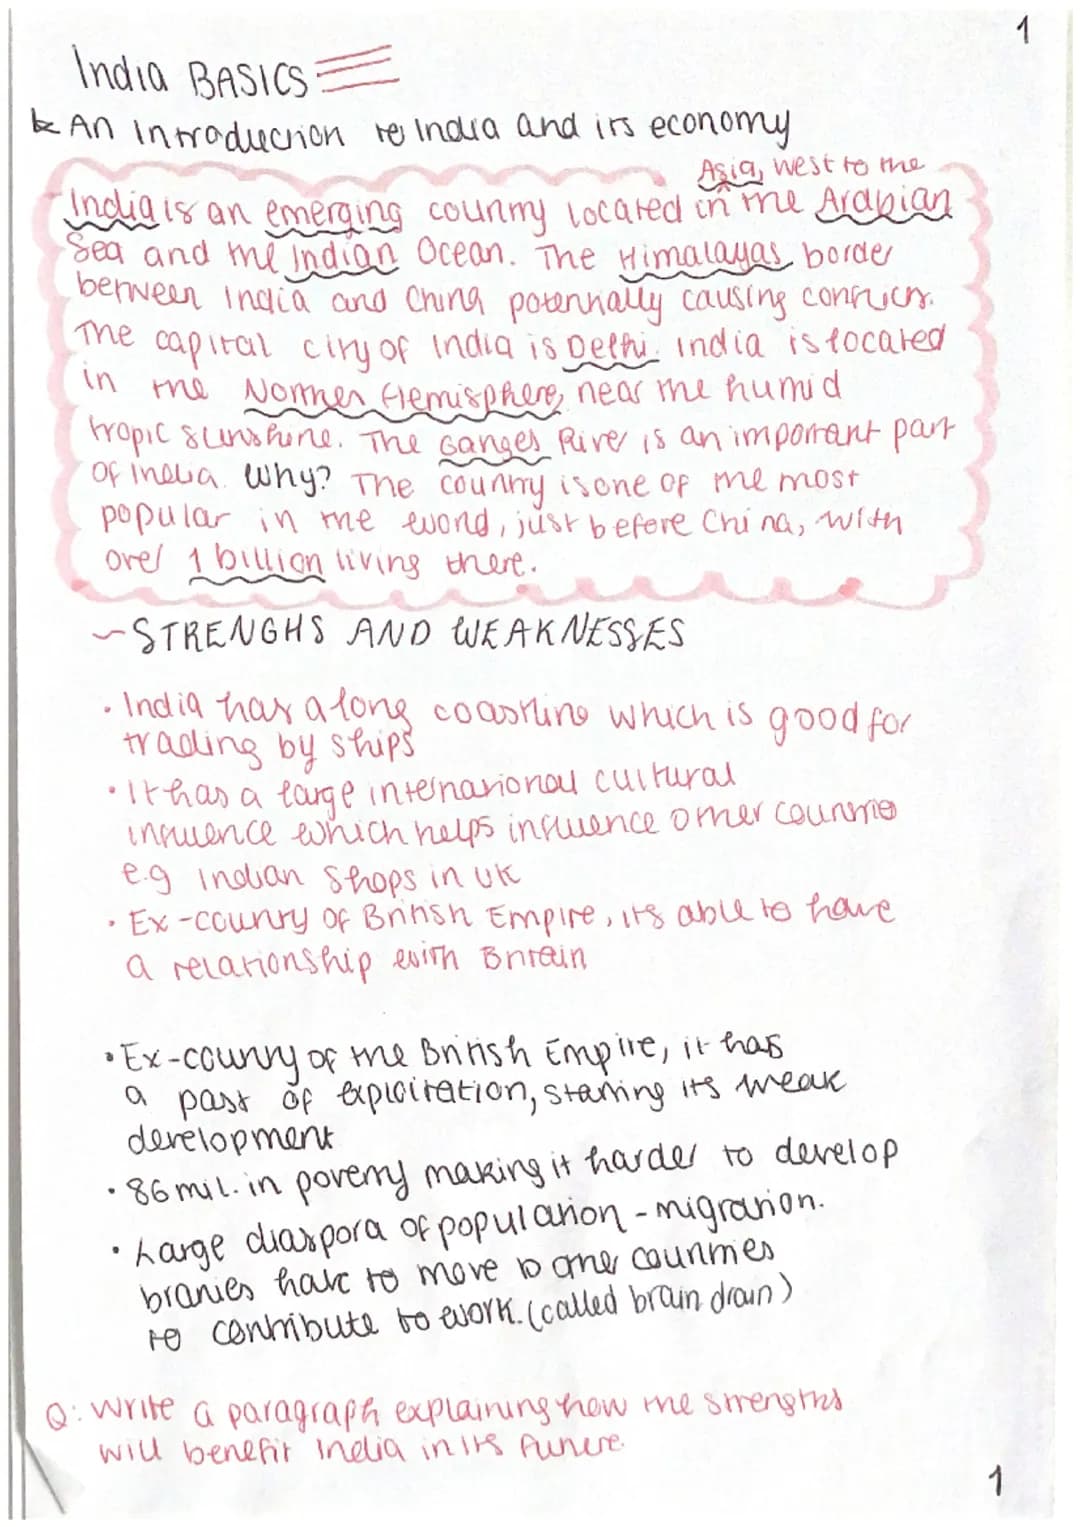 1
India BASICS
An Introduction to India and its economy
Asia, west to the
India is an emerging country located in the Arabian
Sea and the Indian Ocean. The Himalayas border
between India and China potentially causing conflicts.
The capital city of India is Delhi. India is located
in the Northern Hemisphere, near the humid
tropic sunshine. The Ganges River is an important part
of India. Why? The country is one of the most
popular in the world, just before China, with
over 1 billion living there.
~STRENGHS AND WEAKNESSES
• India has a long coastline which is good for
trading by ships
• It has a large international cultural
influence which helps influence other countries
e.g Indian Shops in UK
• Ex-country of British Empire, its able to have
a relationship with Britain
• Ex-country of the British Empire, it has
a past of exploitation, starting its weak
development
• 86 mil. in poverty making it harder to develop
• Large diaspora of population - migration.
branies have to move to other countries
to contribute to work. (called brain drain)
Q: Write a paragraph explaining how the strengths
will benefit India in its future.
1